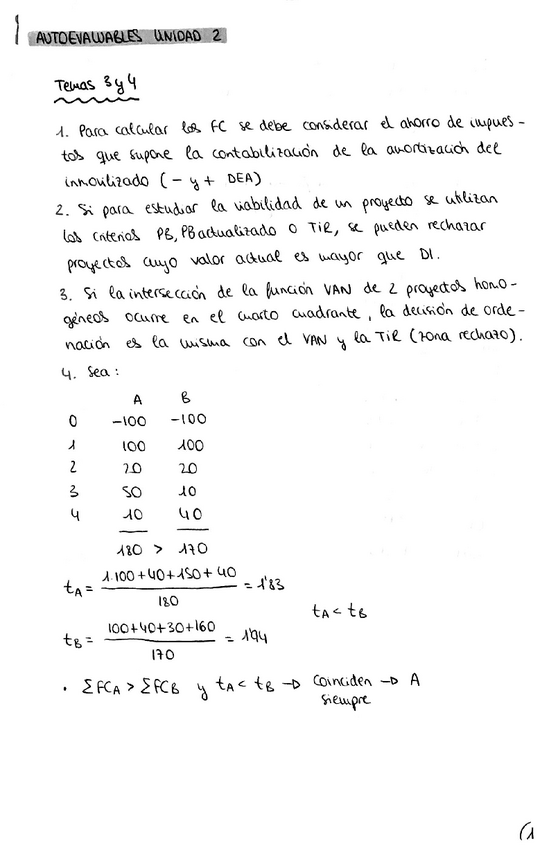 AUTOEVALUABLES UNIDAD 2
Temas 3 y 4
1. Para calcular los FC se debe considerar el ahorro de impues-
tos que supone la contabilización de la amortización del
inmovilizado (- y + DEA)
2. Si para estudiar la viabilidad de un proyecto se utilizan
los criterios PB, PB actualizado o TiR, se pueden rechazar
proyectos cuyo valor actual es mayor que DI.
3. Si la intersección de la función VAN de 2 proyectos homo-
géneos ocurre en el cuarto cuadrante, la decisión de orde-
nación es la misma con el VAN y la TiR (zona rechazo).
4. Sea:
A B
0 -100 -100
1 100 100
2 20 20
3 50 10
4 10 40
180 > 170
tA = 1·100+40+150+40 / 180 = 1'83
tA < tB
tB = 100+40+30+160 / 170 = 1'94
· ΣFCA > ΣFCB y tA < tB → Coinciden → A
siempre
(1